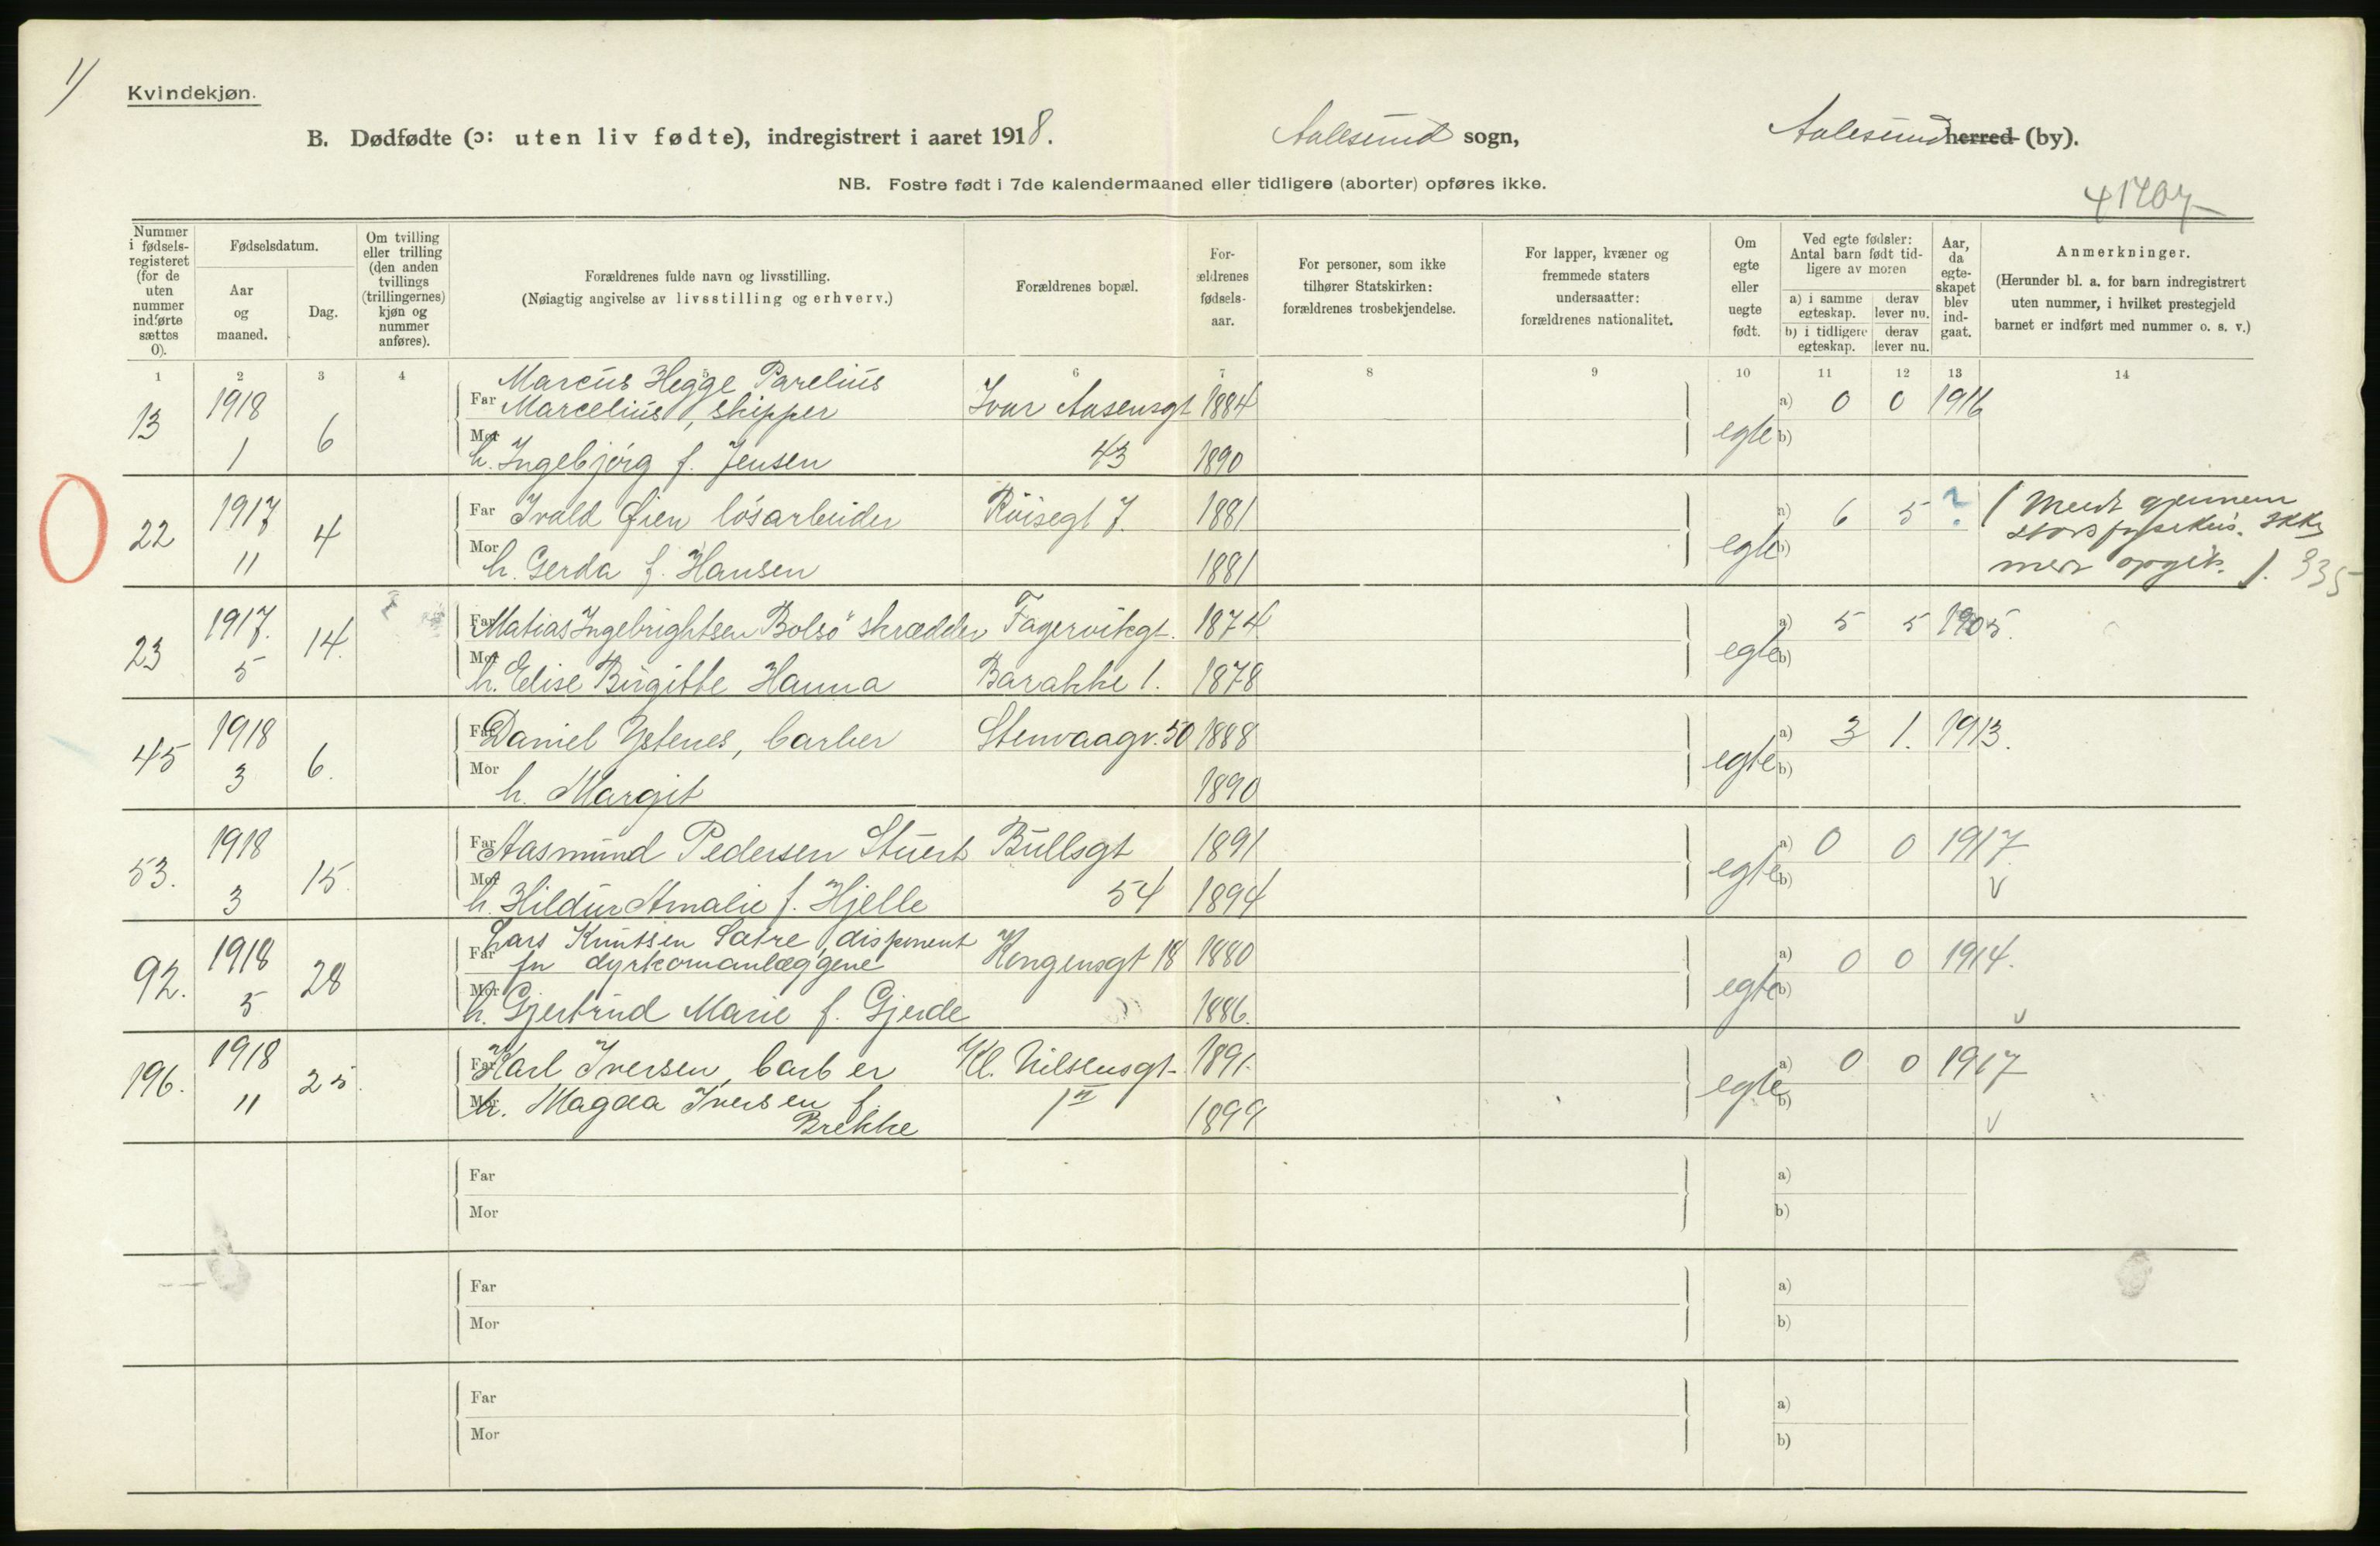 1)
Kvindekjøn.
B. Dødfødte (ɔ: uten liv fødte), indregistrert i aaret 1918. Aalesund sogn, Aalesund herred (by).
NB. Fostre født i 7de kalendermaaned eller tidligere (aborter) opføres ikke.
Nummer i fødsels-registeret (for de uten nummer indførte sættes 0).
Fødselsdatum.
Aar og maaned.
Dag.
Om tvilling eller trilling (den anden tvillings (trillingernes) kjøn og nummer anføres).
Forældrenes fulde navn og livsstilling.
(Nøiagtig angivelse av livsstilling og erhverv.)
Forældrenes bopæl.
For-ældrenes fødsels-aar.
For personer, som ikke tilhører Statskirken: forældrenes trosbekjendelse.
For lapper, kvæner og fremmede staters undersaatter: forældrenes nationalitet.
Om egte eller uegte født.
Ved egte fødsler: Antal barn født tid-ligere av moren
a) i samme egteskap. derav lever nu.
b) i tidligere egteskap. derav lever nu.
Aar, da egte-skapet blev ind-gaat.
Anmerkninger.
(Herunder bl. a. for barn indregistrert uten nummer, i hvilket prestegjeld barnet er indført med nummer o. s. v.)
1 2 3 4 5 6 7 8 9 10 11 12 13 14
13 1918 1 6
Marcus Hegge Parelius
Far Marcelius, skipper Ivar Aasensgt 1884 egte a) 0 0 1916
Mor h. Ingebjørg f. Jensen 43 1890 b)
22 1917 11 4
Far Ivald Øien løsarbeider Røisegt 7. 1881 egte a) 6 5 ?
Mor h. Gerda f. Hansen 1881 b)
335
23 1917. 5 14.
Far Matias Ingebrightsen Bolsø skrædder Fagervikgt. 1874 egte a) 5 5 1905.
Mor h. Elise Birgitte Hanna Barakke 1. 1878 b)
45 1918 3 6.
Far Daniel Ystenes, barber Stenvaagv. 50 1888 egte a) 3 1. 1913.
Mor h. Margit 1890 b)
53. 1918 3 15.
Far Aasmund Pedersen Stuert Bullsgt 1891 egte a) 0 0 1917.
Mor h. Hildur Amalie f. Hjelle 54 1894 b)
92. 1918 5 28
Lars Knutsen Sætre, disponent
Far dyrkomanlæggene Kongensgt 18 1880 egte a) 0 0 1914.
Mor h. Gjertrud Marie f. Gjerde 1886. b)
196. 1918 11 25.
Far Karl Iversen, barber Kl. Nilsensgt- 1891. egte a) 0 0 1917
Mor h. Magda Iversen f. 1 II 1899 b)
Brekke
Far a)
Mor b)
Far a)
Mor b)
Far a)
Mor b)